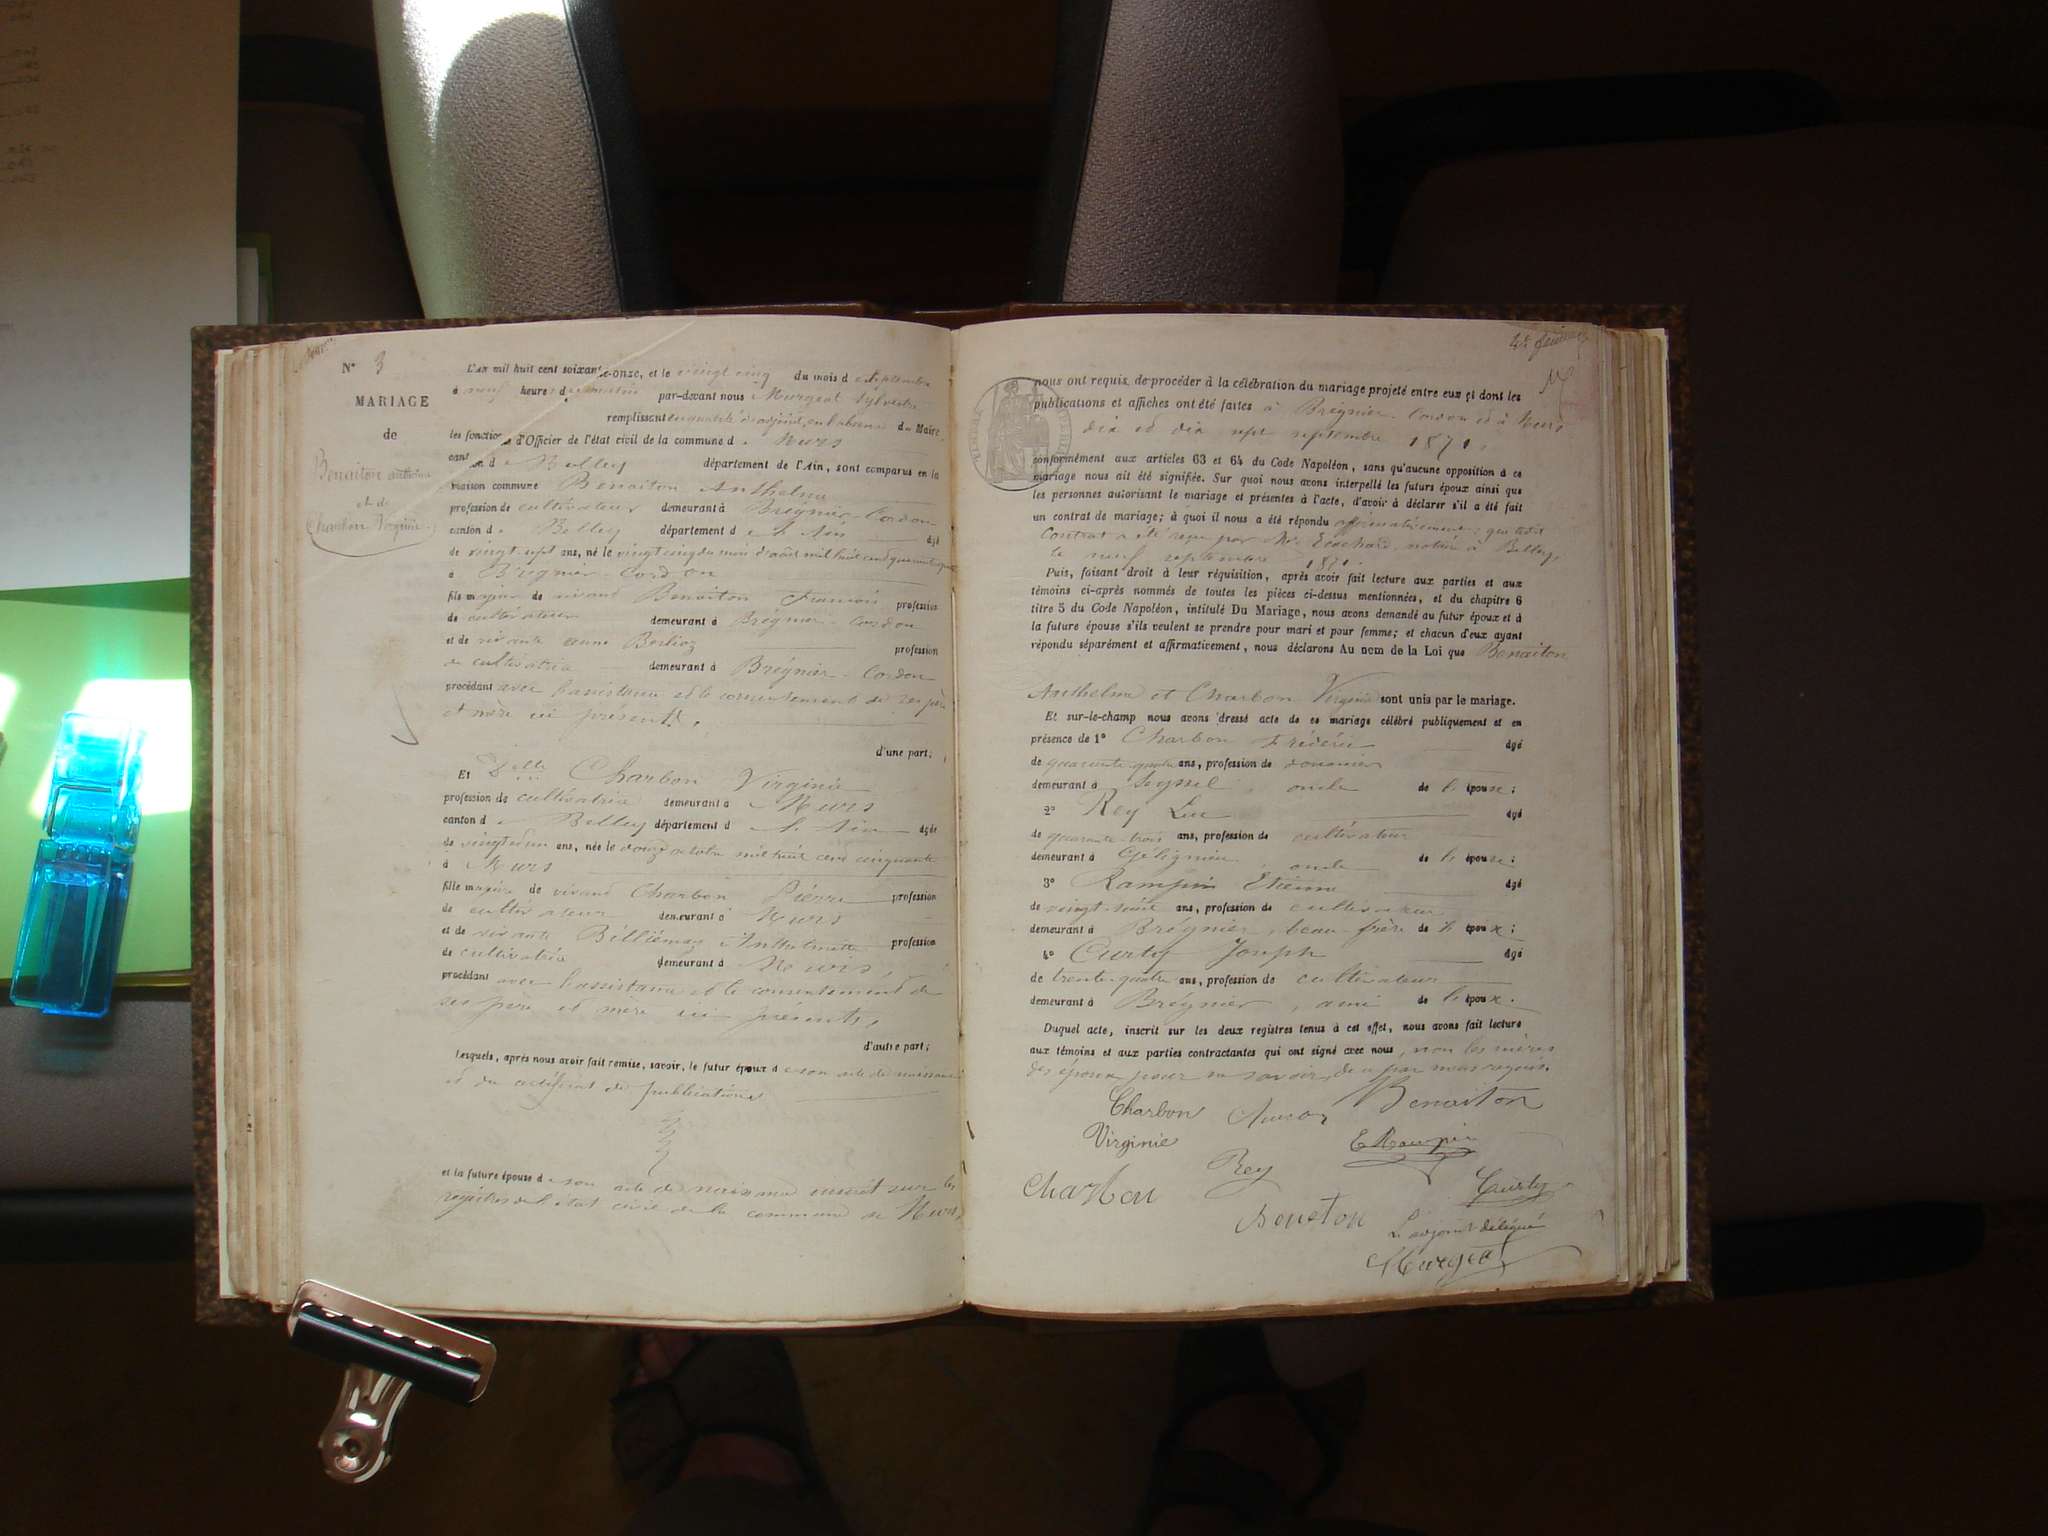 N° 3
MARIAGE
de
Benaiton Anthelme
et de
Charbon Virginie
L'an mil huit cent soixante-onze, et le vingt cinq du mois de Septembre
à neuf heure du matin par-devant nous Murgeat Sylvestre
remplissant en qualité d'adjoint, en l'absence du Maire,
les fonctions d'Officier de l'état civil de la commune de Murs
canton de Belley département de l'Ain, sont comparus en la
maison commune Benaiton Anthelme
profession de cultivateur demeurant à Brégnier-Cordon
canton de Belley département de l'Ain âgé
de vingt-sept ans, né le vingt cinq du mois d'août mil huit cent quarante
à Brégnier-Cordon
fils majeur de vivant Benaiton François profession
de cultivateur demeurant à Brégnier-Cordon
et de vivante anne Berlioz profession
de cultivatrice demeurant à Brégnier-Cordon
procédant avec l'assistance et le consentement de ses père
et mère ici présents,
d'une part;
Et Delle Charbon Virginie
profession de cultivatrice demeurant à Murs
canton de Belley département de l'Ain âgée
de vingt et un ans, née le douze octobre mil huit cent cinquante
à Murs
fille majeure de vivant Charbon Pierre profession
de cultivateur demeurant à Murs
et de vivante Billiémaz Anthelmette profession
de cultivatrice demeurant à Murs,
procédant avec l'assistance et le consentement de
ses père et mère ici présents,
d'autre part;
Lesquels, après nous avoir fait remise, savoir, le futur époux de son acte de naissance
et du certificat de publications
et la future épouse de son acte de naissance inscrit sur les
registres de l'état civil de la commune de Murs,
4e feuillet
nous ont requis de procéder à la célébration du mariage projeté entre eux et dont les
publications et affiches ont été faites à Brégnier-Cordon et à Murs
dix et dix sept septembre 1871.
conformément aux articles 63 et 64 du Code Napoléon, sans qu'aucune opposition à ce
mariage nous ait été signifiée. Sur quoi nous avons interpellé les futurs époux ainsi que
les personnes autorisant le mariage et présentes à l'acte, d'avoir à déclarer s'il a été fait
un contrat de mariage; à quoi il nous a été répondu affirmativement; que ledit
Contrat a été reçu par Me notaire à Belley,
le neuf septembre 1871.
Puis, faisant droit à leur réquisition, après avoir fait lecture aux parties et aux
témoins ci-après nommés de toutes les pièces ci-dessus mentionnées, et du chapitre 6
titre 5 du Code Napoléon, intitulé Du Mariage, nous avons demandé au futur époux et à
la future épouse s'ils veulent se prendre pour mari et pour femme; et chacun d'eux ayant
répondu séparément et affirmativement, nous déclarons Au nom de la Loi que Benaiton
Anthelme et Charbon Virginie sont unis par le mariage.
Et sur-le-champ nous avons dressé acte de ce mariage célébré publiquement et en
présence de 1° Charbon Frédéric âgé
de quarante-quatre ans, profession de douanier
demeurant à Seyssel, oncle de l'épouse;
2° Rey Luc âgé
de quarante trois ans, profession de cultivateur
demeurant à Gélignieu, oncle de l'épouse;
3° Rampin Etienne âgé
de vingt-huit ans, profession de cultivateur
demeurant à Brégnier, beau-frère de l'époux;
4° Curty Joseph âgé
de trente-quatre ans, profession de cultivateur
demeurant à Brégnier, ami de l'époux.
Duquel acte, inscrit sur les deux registres tenus à cet effet, nous avons fait lecture
aux témoins et aux parties contractantes qui ont signé avec nous, non les mères
des époux pour ne savoir, de ce par nous requis.
Charbon Benaiton
Virginie E Rampin
Rey
Charbon Curty
Beneton
L'adjoint délégué
Murgeat